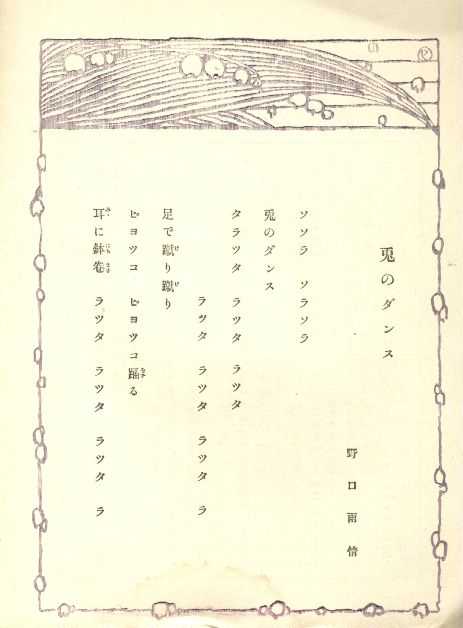 兎のダンス
野口雨情
ソソラ ソラソラ
兎のダンス
タラツタ ラツタ ラツタ
ラツタ ラツタ ラツタ ラ
足で蹴り蹴り
ピヨツコ ピヨツコ踊る
耳に鉢巻 ラツタ ラツタ ラツタ ラ